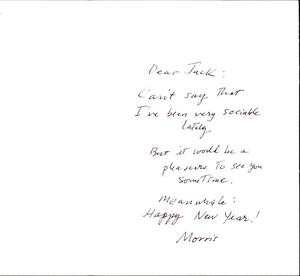 Dear Jack:
Can't say that
I've been very sociable
lately.
But it would be a
pleasure to see you
sometime.
Meanwhile:
Happy New Year!
Morris